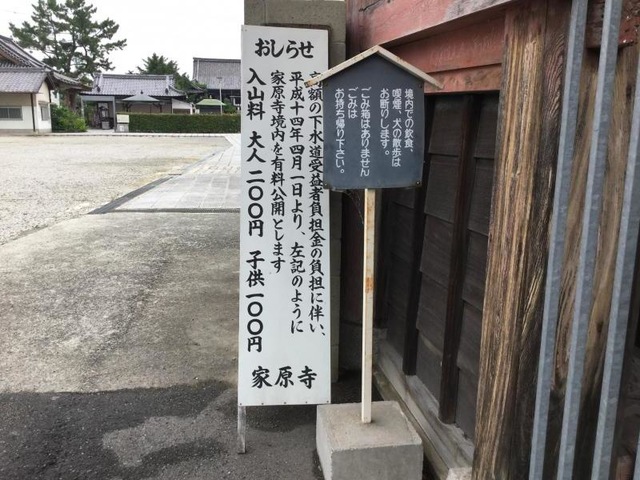 おしらせ
高額の下水道受益者負担金の負担に伴い、
平成十四年四月一日より、左記のように
家原寺境内を有料公開とします
入山料 大人 二〇〇円 子供 一〇〇円
家原寺
境内での飲食、
喫煙、犬の散歩は
お断りします。
ごみ箱はありません
ごみは
お持ち帰り下さい。